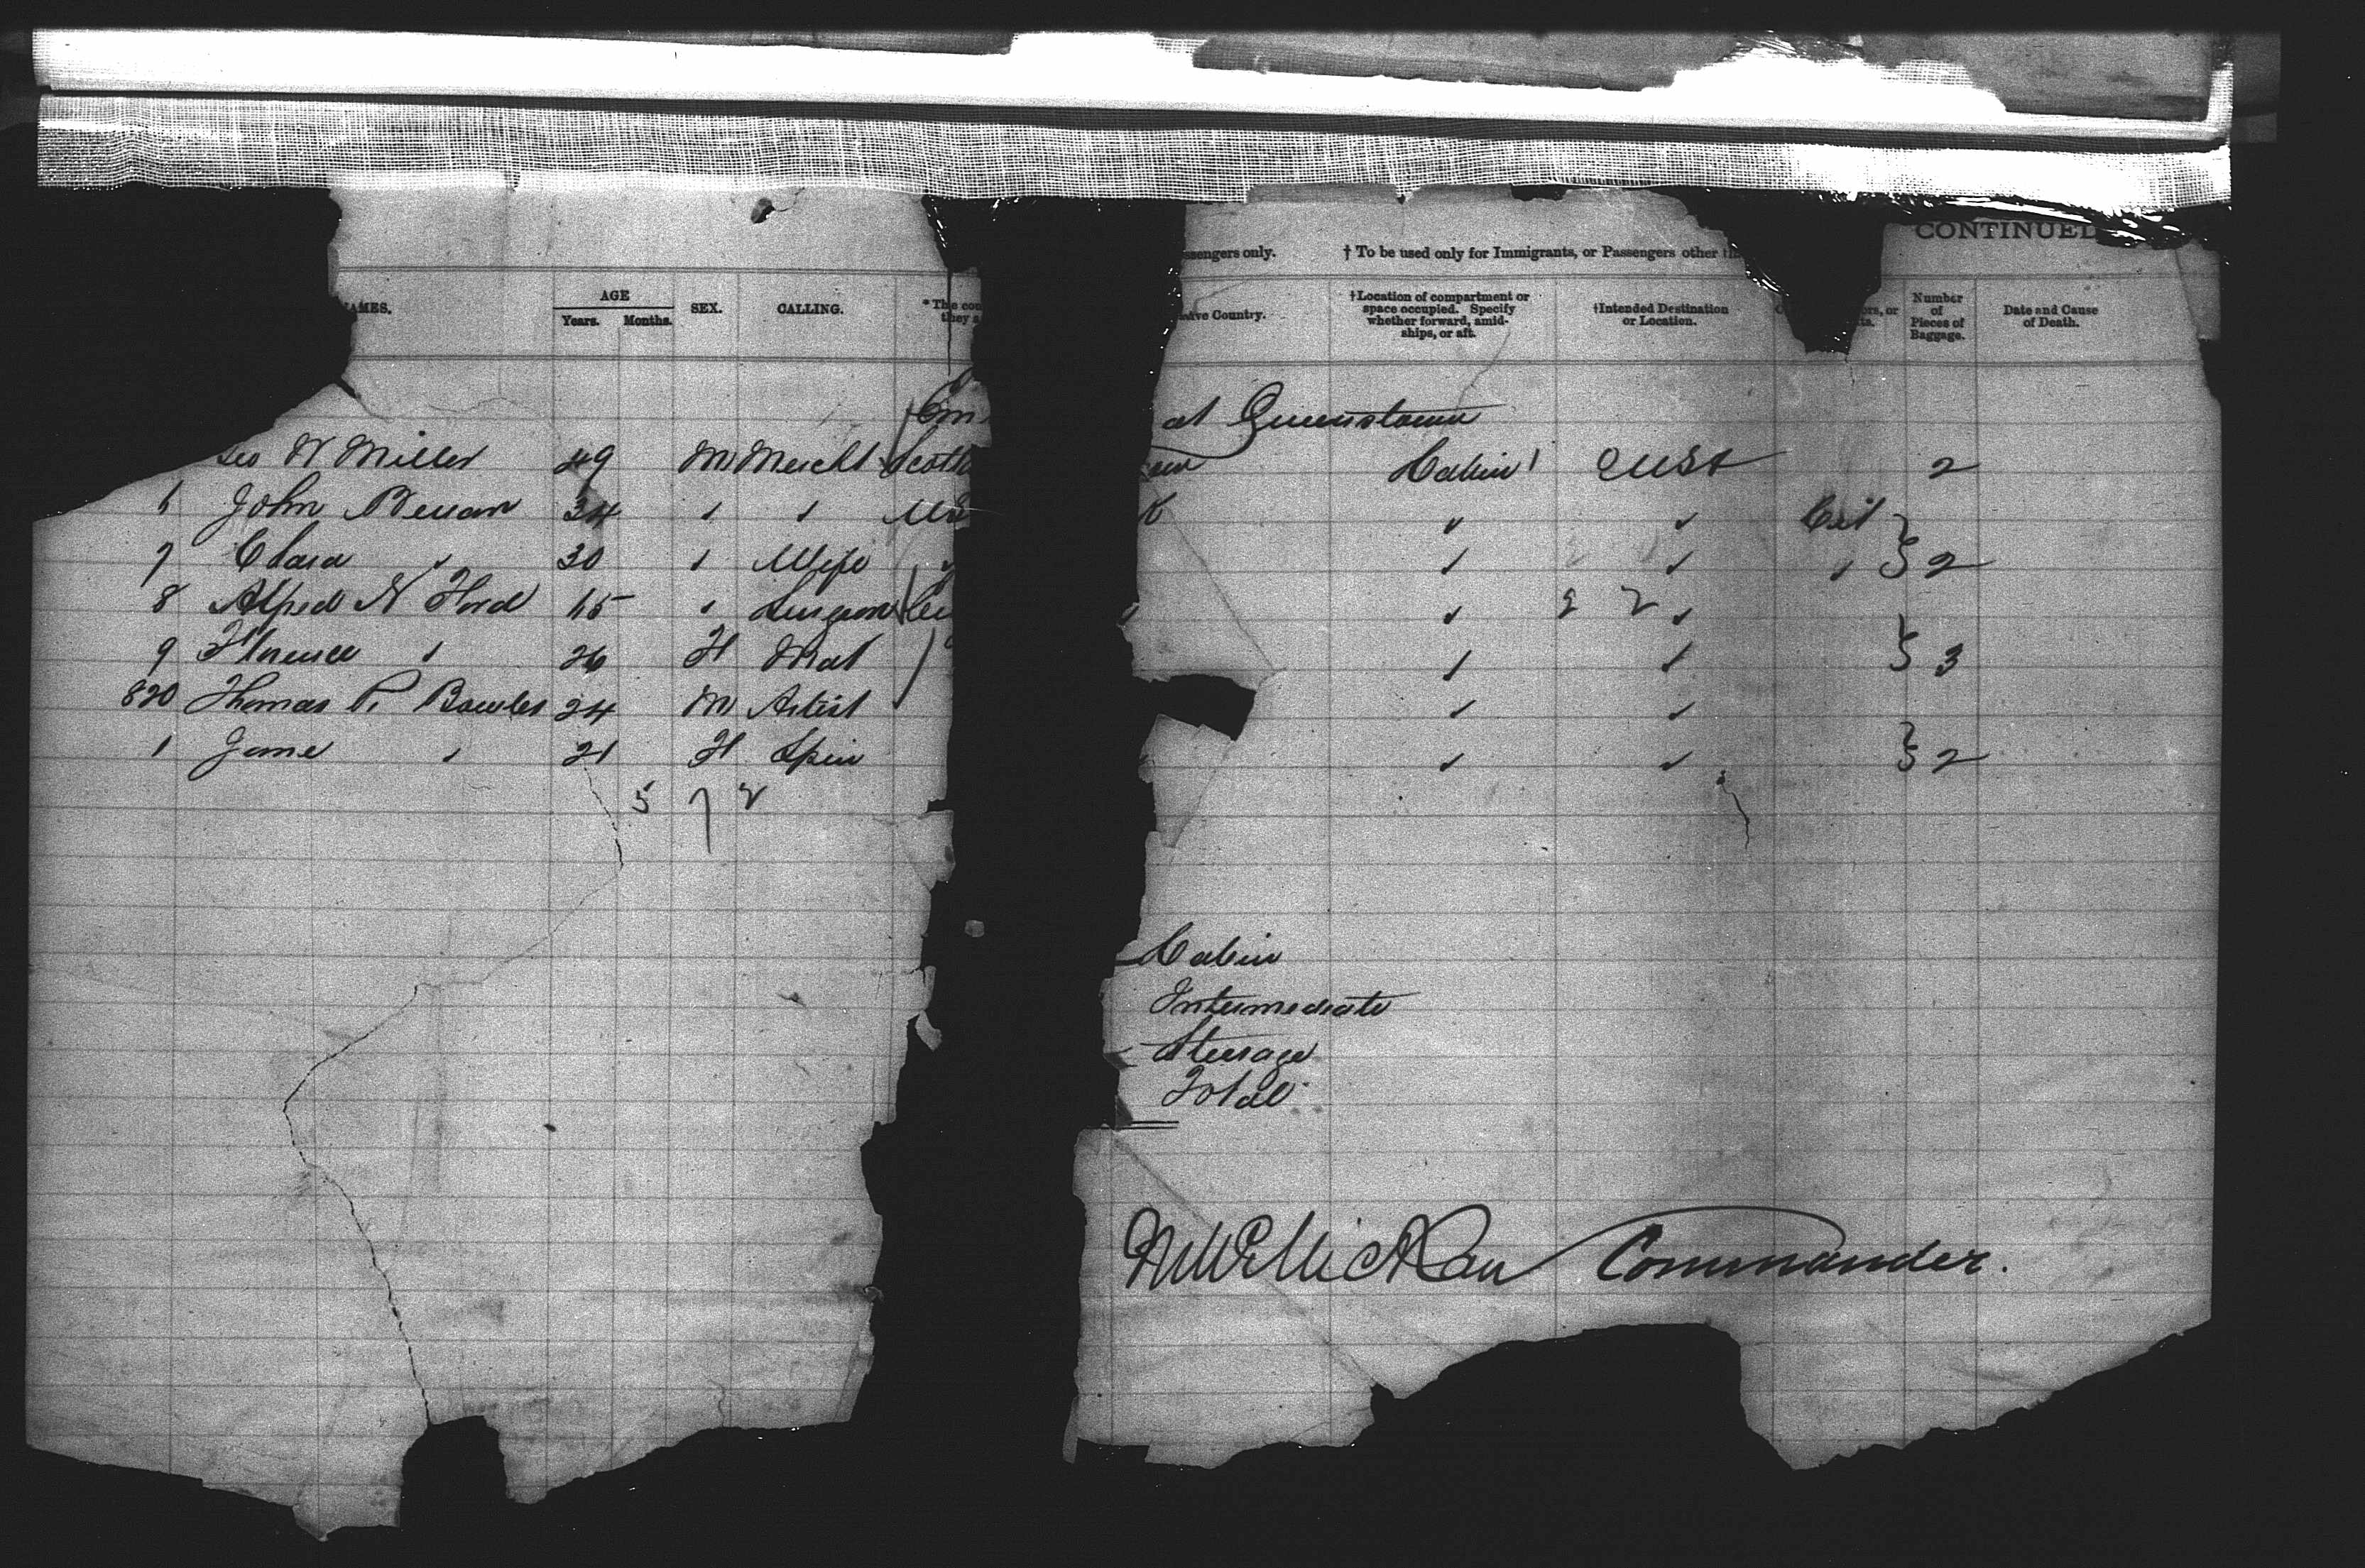 CONTINUED
ssengers only. † To be used only for Immigrants, or Passengers other th
NAMES. AGE Years. Months. SEX. CALLING. * The cou they a ive Country. †Location of compartment or space occupied. Specify whether forward, amid-ships, or aft. †Intended Destination or Location. ors, or ts. Number of Pieces of Baggage. Date and Cause of Death.
Em at Queenstown
Geo W Miller 49 M Mercht Scotl Cabin 2
6 John Bevan 34 " " " " Cit
7 Clara " 30 " Wife " " " " } 2
8 Alfred N Ford 65 " Surgeon " "
9 Florence " 26 F Mat " " } 3
820 Thomas P. Bowles 24 M Artist " "
1 Jane " 21 F Spin " " } 2
5 7 2
Cabin
Intermediate
Steerage
Total
Commander.